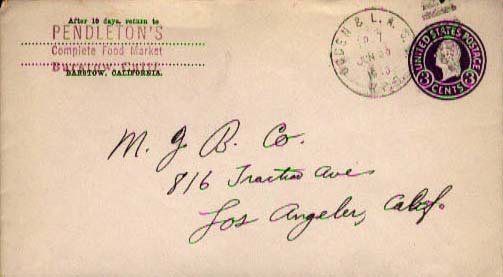 After 10 days, return to
PENDLETON'S
Complete Food Market
Barstow, Calif.
BARSTOW, CALIFORNIA.
OGDEN & L. A.
JUN
R.P.O.
UNITED STATES POSTAGE
3 3
CENTS
M. J. B. Co.
816 Traction Ave
Los Angeles, Calif.